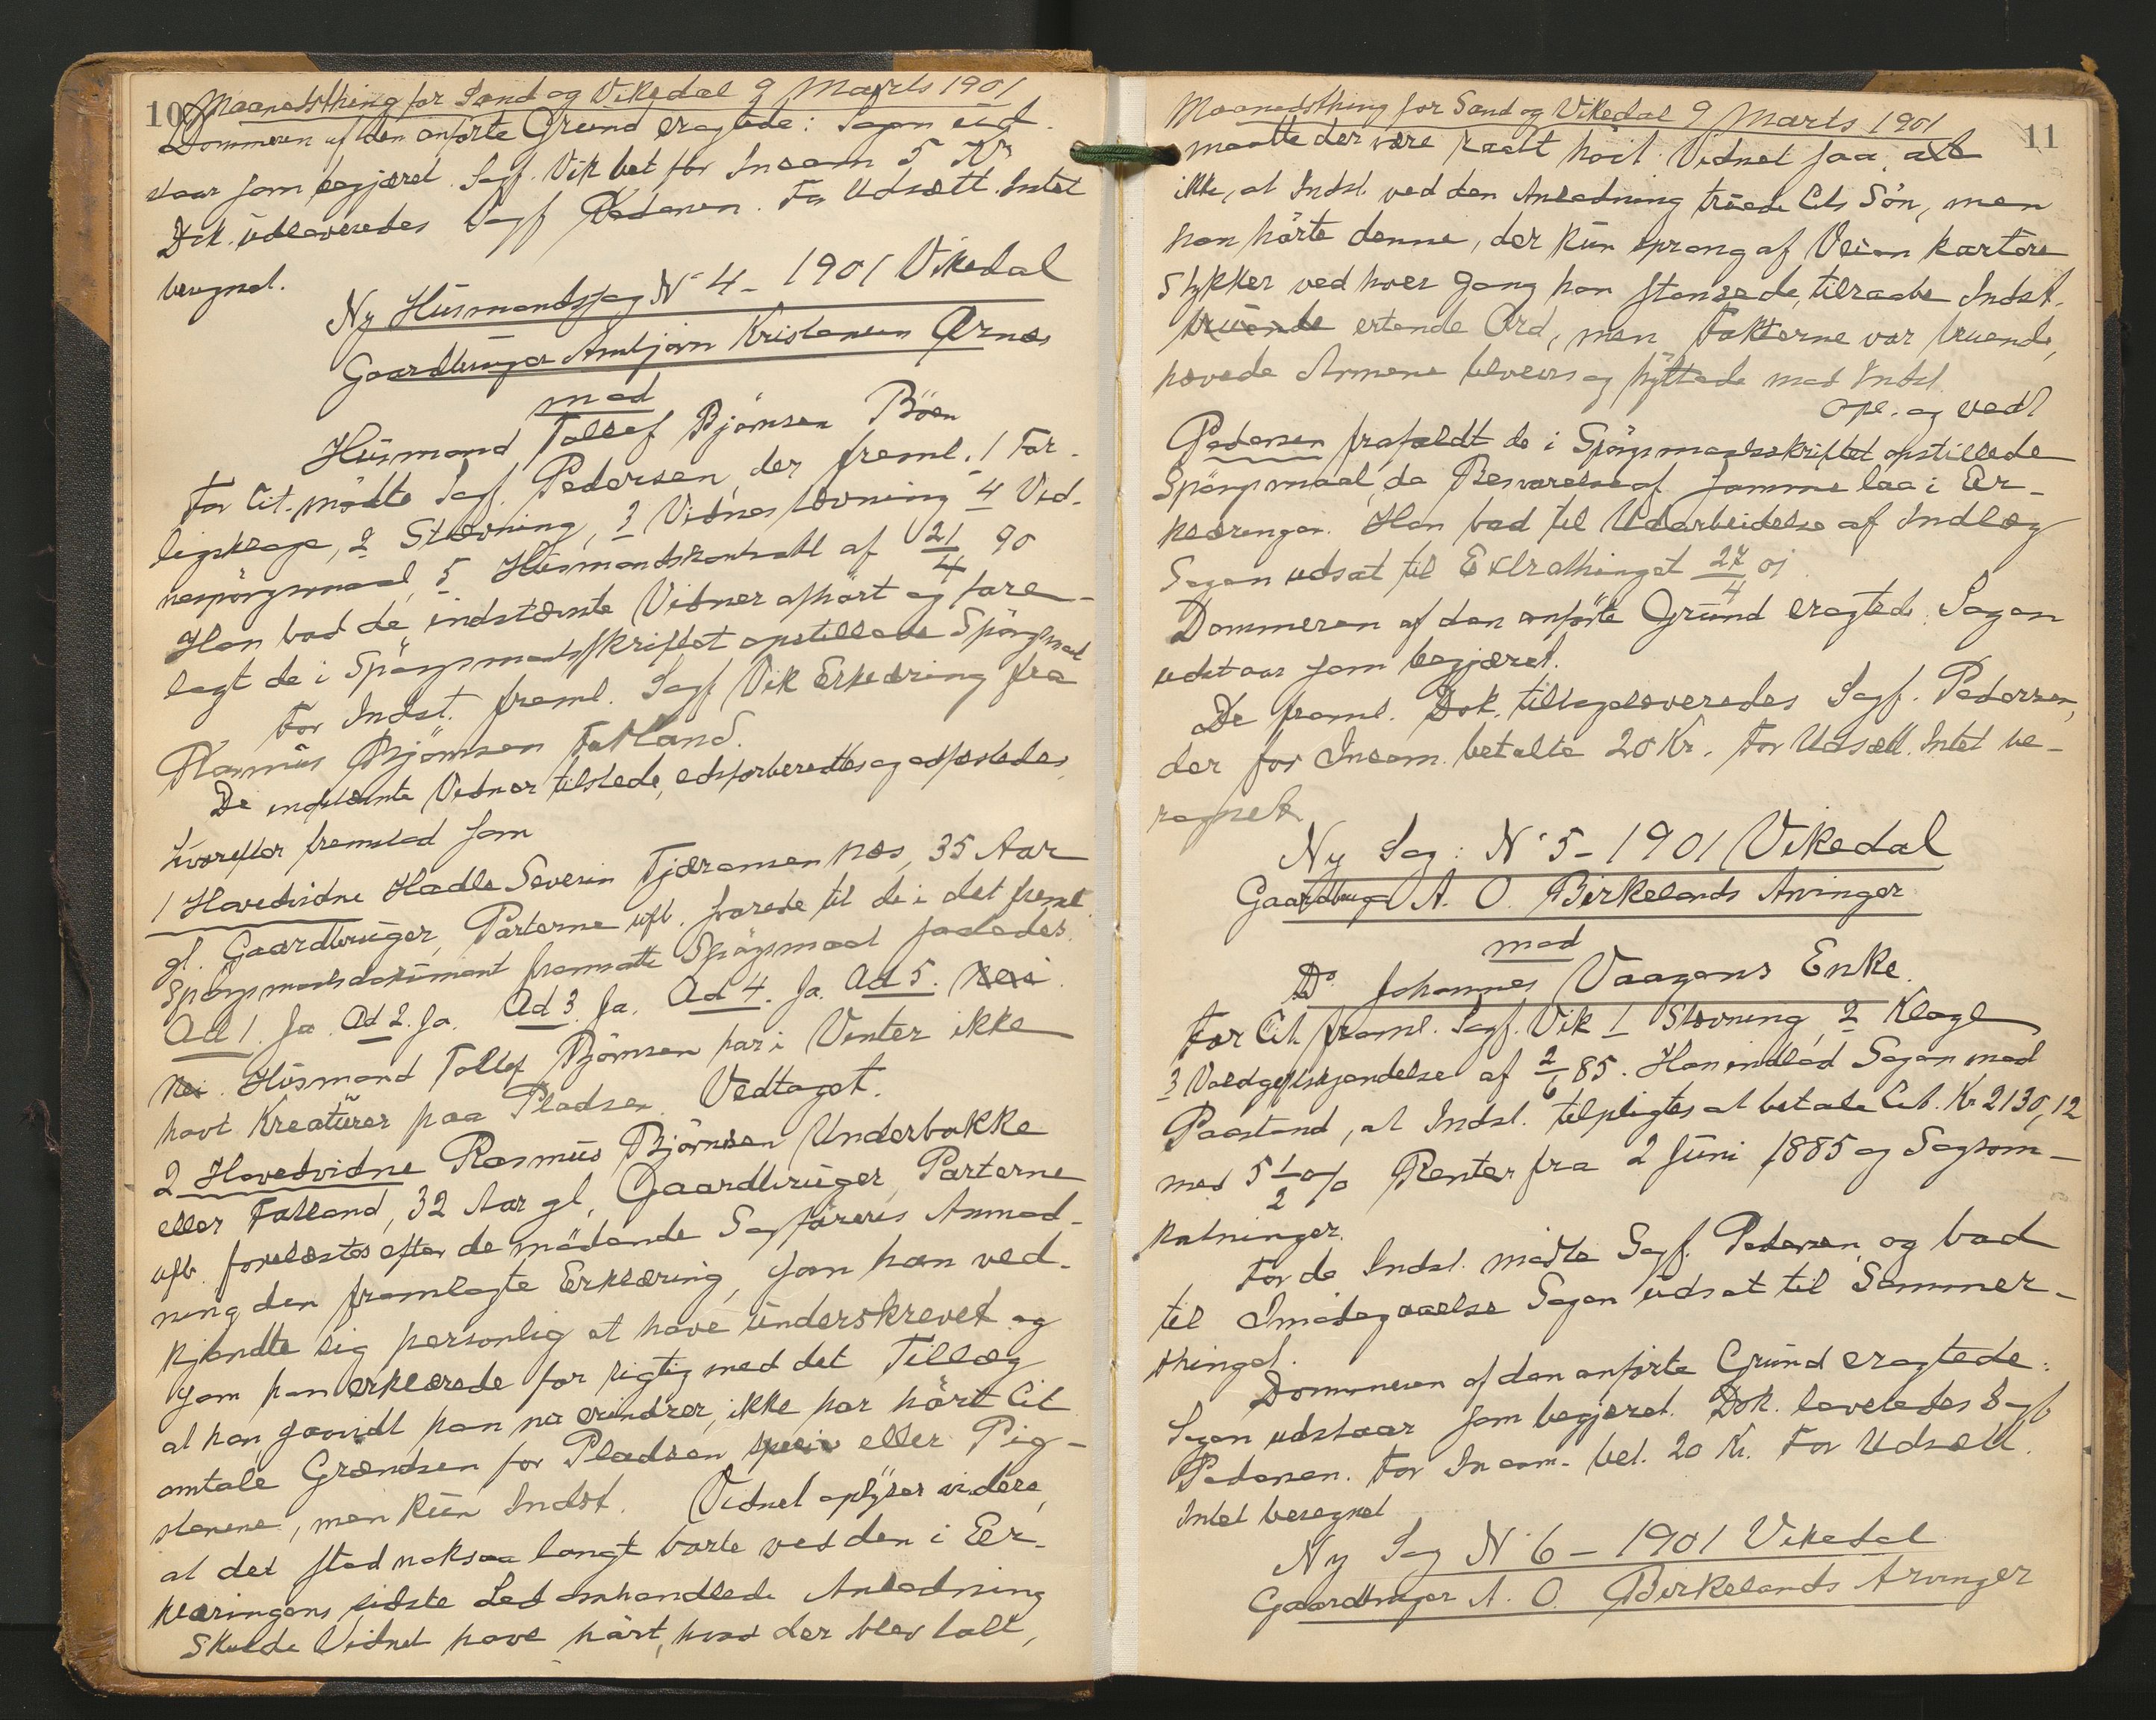 10 Maanedsthing for Sand og Vikedal 9 Marts 1901
Dommeren af den anførte Grund eragtede: Sagen ud-
staar som begjæret. Sagf. Vik bet for Incam 5 Kr
Dok. udleveredes Sagf Pedersen. For Udsætt. Intet
beregnet.
Ny Husmandssag N° 4 - 1901 Vikedal
Gaardbruger Ambjørn Kristensen Ørnes
mod
Husmand Tollef Bjørnsen Bøen
For Cit. mødte Sagf. Pedersen, der freml. 1 For-
ligsklage, 2 Stævning, 3 Vidnestævning 4 Vid-
nespørgsmaal, 5 Husmandskontrakt af 21/4 90
Han bad de indstævnte Vidner afhørt og fore-
lagt de i Spørgsmaalsskriftet opstillede Spørgsmaal
For Indst. freml. Sagf Vik Erklæring fra
Rasmus Bjørnsen Fatland.
De indstævnte Vidner tilstede, edsforberedtes og edfæstedes,
hvorefter fremstod som
1 Hovedvidne Hadle Severin Tjæransen Næs, 35 Aar
gl. Gaardbruger, Parterne ufb. svarede til de i det freml.
Spørgsmaalsdokument fremsatte Spørgsmaal saaledes.
Ad 1. Ja. Ad 2. Ja. Ad 3. Ja. Ad 4. Ja. Ad 5. Nei.
Nei. Husmand Tollef Bjørnsen har i Vinter ikke
havt Kreaturer paa Pladsen. Vedtaget.
2 Hovedvidne Rasmus Bjørnsen Underbakke
eller Fatland, 32 Aar gl, Gaardbruger, Parterne
ufb. forelæstes efter de mødende Sagføreres Anmod-
ning den fremlagte Erklæring, som han ved-
kjendte sig personlig at have underskrevet og
som han erklærede for rigtig med det Tillæg
at han saavidt han nu erindrer, ikke har hørt Cit
omtale Grændsen for Pladsen eller Pig-
stenene, men kun Indst. Vidnet oplyser videre,
at det stod noksaa langt borte ved den i Er-
klæringens sidste Led omhandlede Anledning
Skulde Vidnet have hørt, hvad der blev talt,
Maanedsthing for Sand og Vikedal 9 Marts 1901 11
maatte der være raabt høit. Vidnet saa alt
ikke, at Indst. ved den Anledning truede Cits Søn, men
han hørte denne, der kun sprang af Veien kortere
Stykker ved hver Gang han stansede, tilraabe Indst.
truende ertende Ord, men Fakterne var truende,
hævede Armene tilveirs og hyttede mod Indst
Opl. og vedt
Pedersen frafaldt de i Spørgsmaalsskriftet opstillede
Spørgsmaal, da Besvarelse af samme laa i Er-
klæringen. Han bad til Udarbeidelse af Indlæg
Sagen udsat til Extrathinget 27/4 01
Dommeren af den anførte Grund eragted: Sagen
udstaar som begjæret.
De freml. Dok. tilbageleveredes Sagf. Pedersen,
der for Incam. betalte 20 Kr. For Udsætt. Intet be-
regnet
Ny Sag: N° 5 - 1901 Vikedal
Gaardbruger A. O. Birkelands Arvinger
mod
Do Johannes Vaagens Enke.
For Cit. freml. Sagf. Vik 1 Stævning, 2 Klage
3 Voldgiftskjendelse af 2/6 85. Han indlod Sagen med
Paastand, at Indst. tilpligtes at betale Cit. Kr 2130,12
med 5 1/2 % Renter fra 2 Juni 1885 og Sagsom-
kostninger.
For de Indst. mødte Sagf. Pedersen, og bad
til Imødegaaelse Sagen udsat til Sommer-
thinget.
Dommeren af den anførte Grund eragtede:
Sagen udstaar som begjæret. Dok. leveredes Sagf
Pedersen. For Incam. bet. 20 Kr. For Udsætt.
Intet beregnet
Ny Sag N° 6 - 1901 Vikedal
Gaardbruger A. O. Birkelands Arvinger